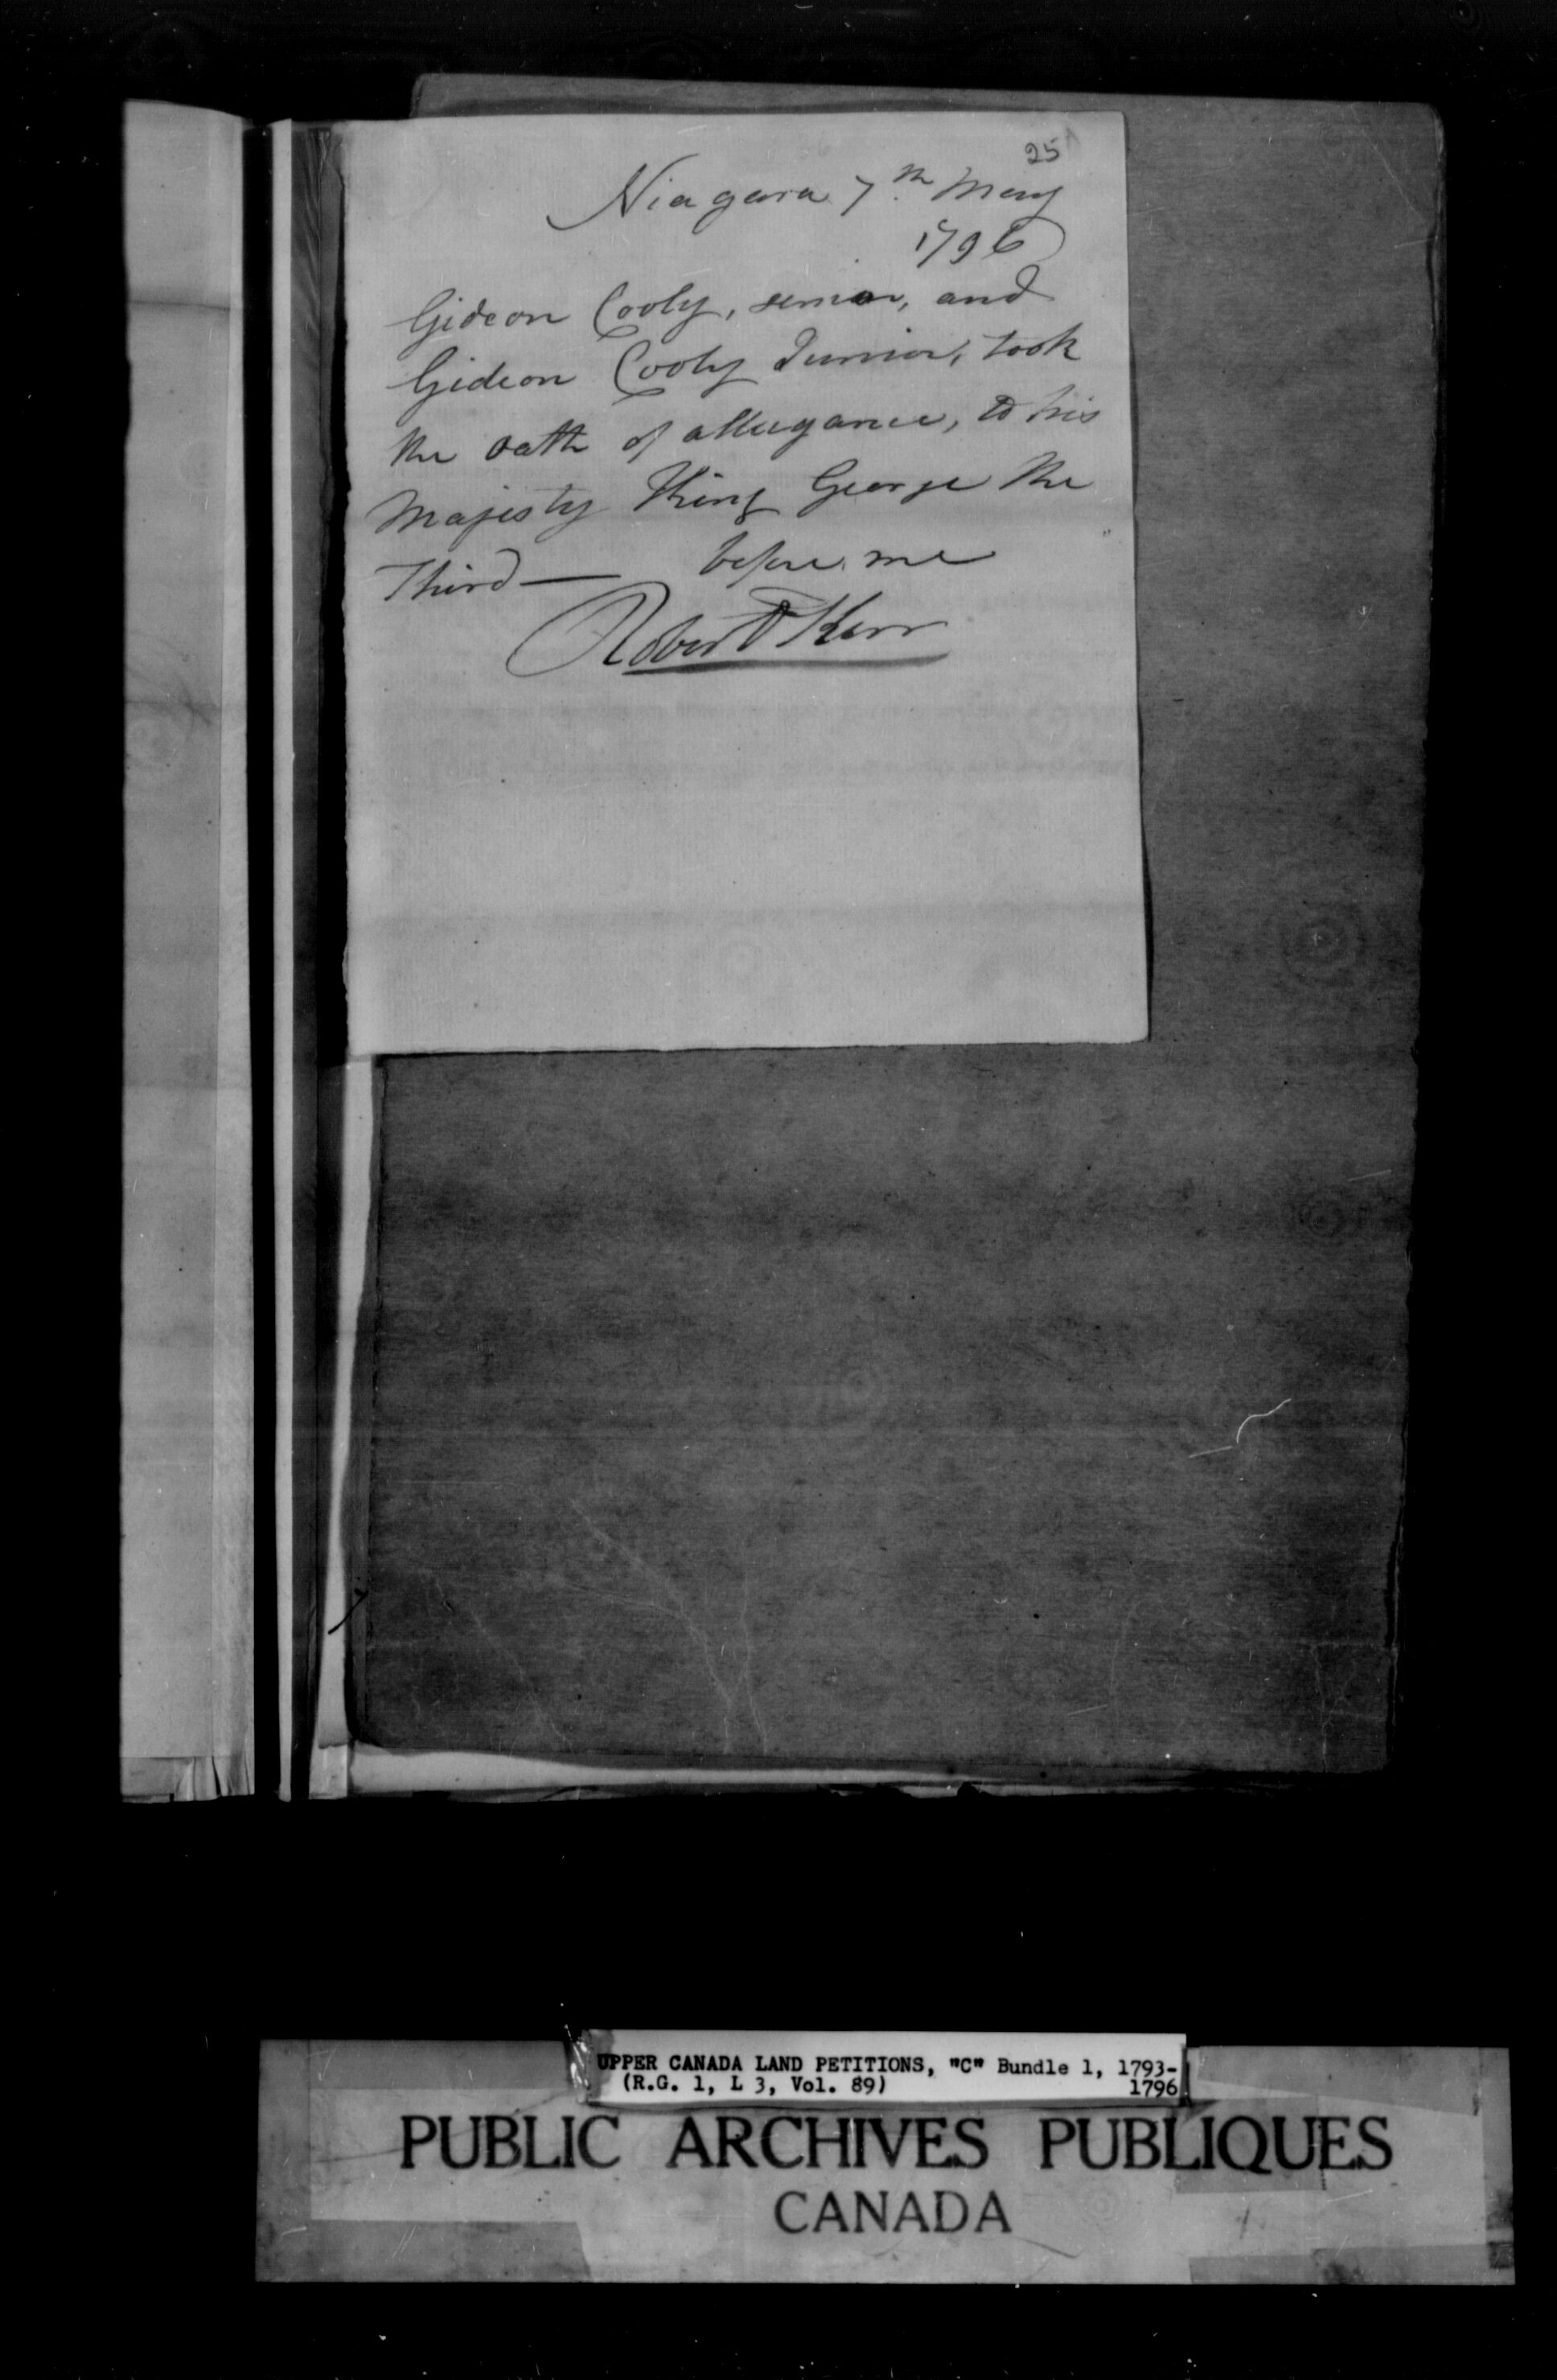 25
Niagara 7th May
1796
Gideon Cooly, senior, and
Gideon Cooly Junior, took
the oath of allegance, to his
Majesty King George the
Third — before me
Robert Kerr
UPPER CANADA LAND PETITIONS, "C" Bundle 1, 1793-
(R.G. 1, L 3, Vol. 89) 1796
PUBLIC ARCHIVES PUBLIQUES
CANADA